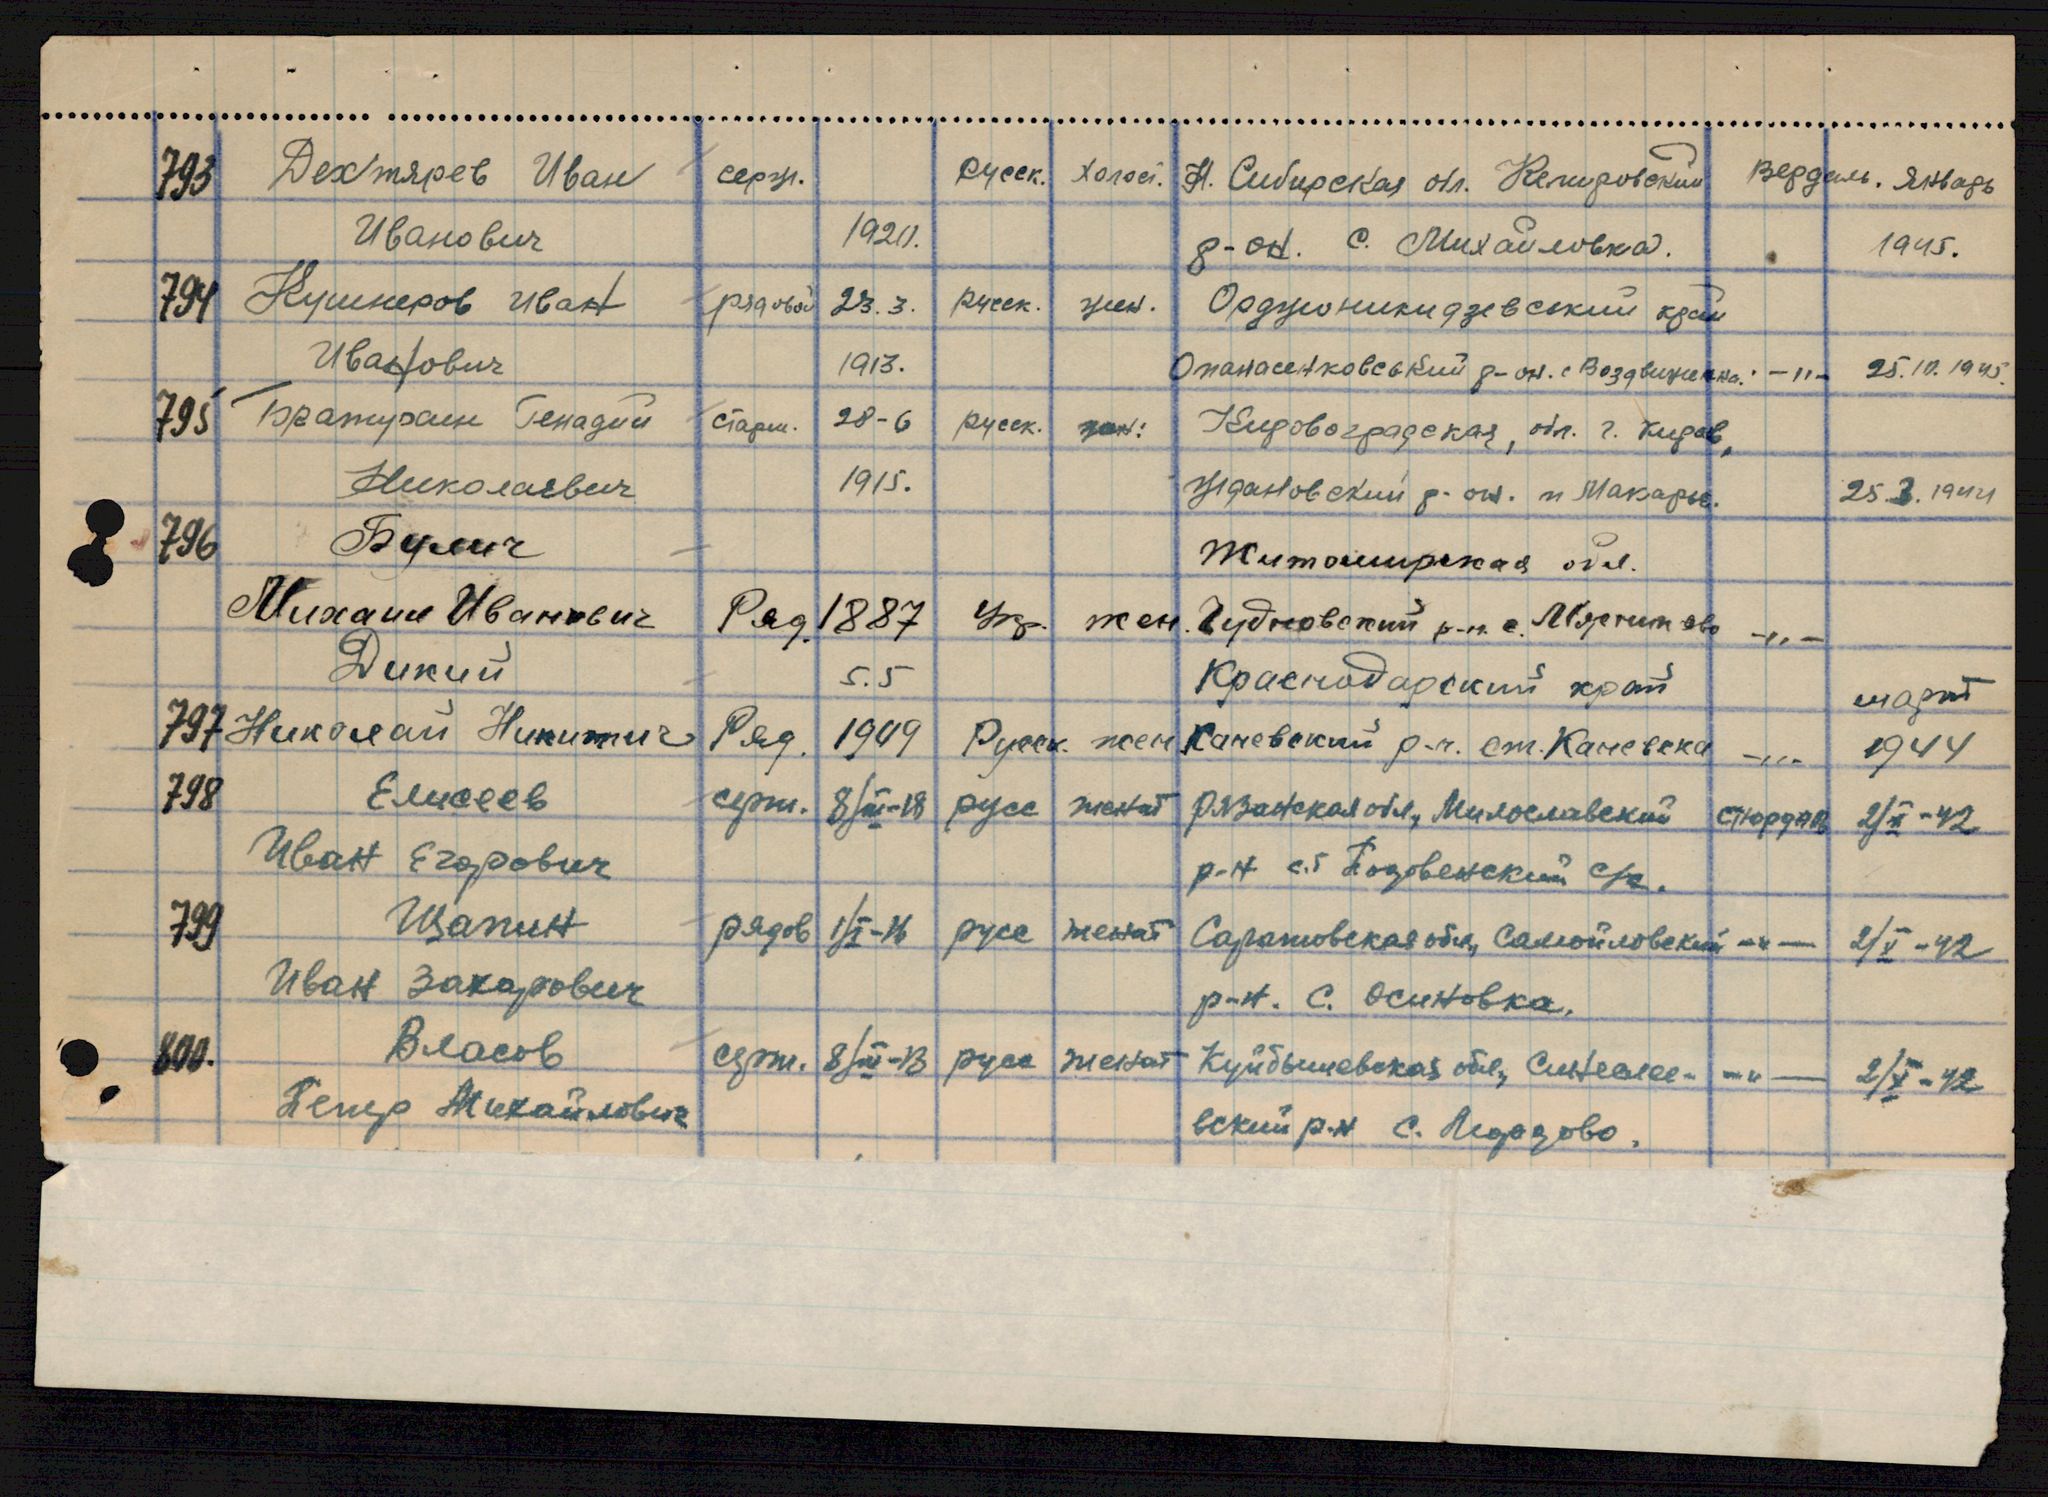 793 Дехтярев Иван серж. русск. холост. Н. Сибирская обл. Кемировский Вердаль. Январь
Иванович 1920. р-он. с. Михайловка. 1945.
794 Кушнеров Иван рядовой 23.3. русск. жен. Орджоникидзевский край
Иванович 1913. Опанасенковський р-он. с Воздвиженка. -"- 25.10.1945.
795 Генадий старш. 28-6 русск. жен. Кировоградская, обл. г. Киров,
Николаевич 1915. Ждановский р-он. п Макарье. 25.3.1944
796 Булич Житомирская обл.
Михаил Иванович Ряд. 1887 Укр. жен. Чудновский р-н. с. -"-
Дикий 5.5 Краснодарский край март
797 Николай Никитич Ряд. 1909 Русск. жен Каневский р-н. ст. Каневска -"- 1944
798 Елисеев серж. 8/III-18 русс женат Рязанская обл., Милославский Стюрдал 2/X-42
Иван Егорович р-н с/с.
799 Щапин рядов 1/I-16 русс женат Саратовская обл., Самойловский -"- 2/X-42
Иван Захарович р-н. с. Осиновка.
800. Власов серж. 8/III-13 русс женат Куйбышевская обл., Сителее- -"- 2/X-42
Петр Михайлович вский р-н с.